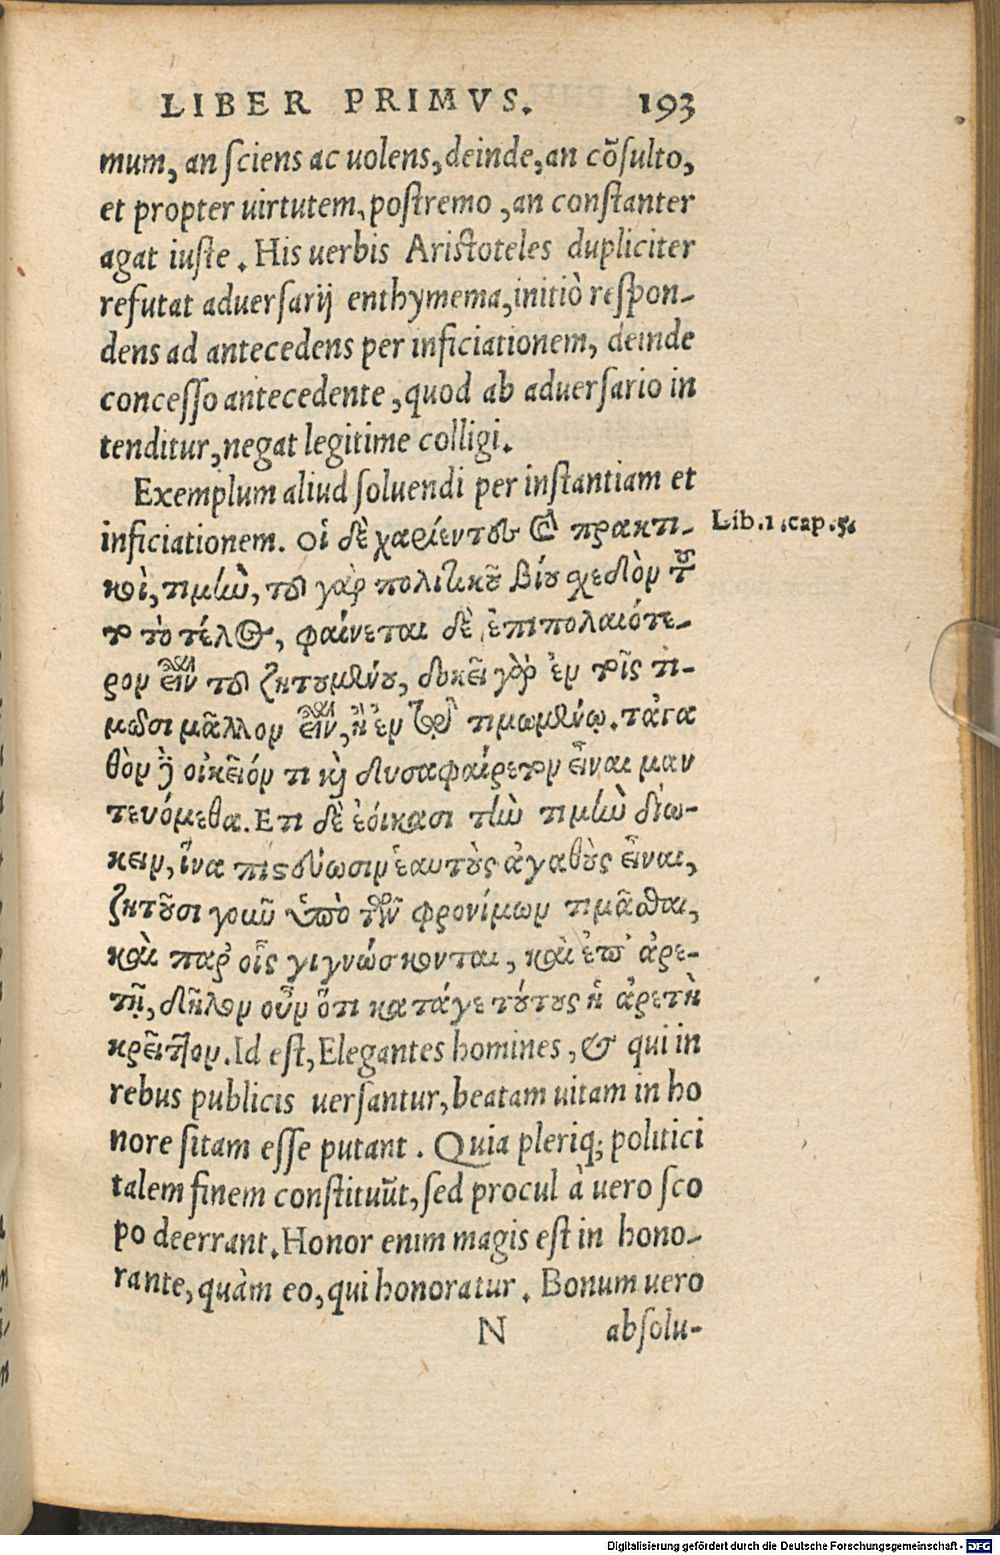 LIBER PRIMVS. 193
mum, an sciens ac uolens, deinde, an cõsulto,
et propter uirtutem, postremo, an constanter
agat iuste. His uerbis Aristoteles dupliciter
refutat aduersarij enthymema, initiò respon-
dens ad antecedens per inficiationem, deinde
concesso antecedente, quod ab aduersario in
tenditur, negat legitime colligi.
Exemplum aliud soluendi per instantiam et
inficiationem. οἱ δὲ χαρίεντες καὶ πρακτι-
Lib.1.cap.5.
κοὶ, τιμὴν, τοῦ γὰρ πολιτικοῦ βίου σχεδὸν τοῦ
το τὸ τέλος, φαίνεται δὲ ἐπιπολαιότε-
ρον εἶναι τοῦ ζητουμένου, δοκεῖ γὰρ ἐν τοῖς τι-
μῶσι μᾶλλον εἶναι, ἢ ἐν τῷ τιμωμένῳ. τἀγα
θὸν δὲ οἰκεῖόν τι καὶ δυσαφαίρετον εἶναι μαν
τευόμεθα. Ετι δὲ ἐόικασι τὴν τιμὴν διώ-
κειν, ἵνα πιστεύωσιν ἑαυτοὺς ἀγαθοὺς εἶναι,
ζητοῦσι γοῦν ὑπὸ τῶν φρονίμων τιμᾶσθαι,
καὶ παρ' οἷς γιγνώσκονται, καὶ ἐπ' ἀρε-
τῇ, δῆλον οὖν ὅτι κατάγε τούτους ἡ ἀρετὴ
κρείττων. Id est, Elegantes homines, & qui in
rebus publicis uersantur, beatam uitam in ho
nore sitam esse putant. Quia pleriq; politici
talem finem constituũt, sed procul à uero sco
po deerrant. Honor enim magis est in hono-
rante, quàm eo, qui honoratur. Bonum uero
N absolu-
Digitalisierung gefördert durch die Deutsche Forschungsgemeinschaft - DFG